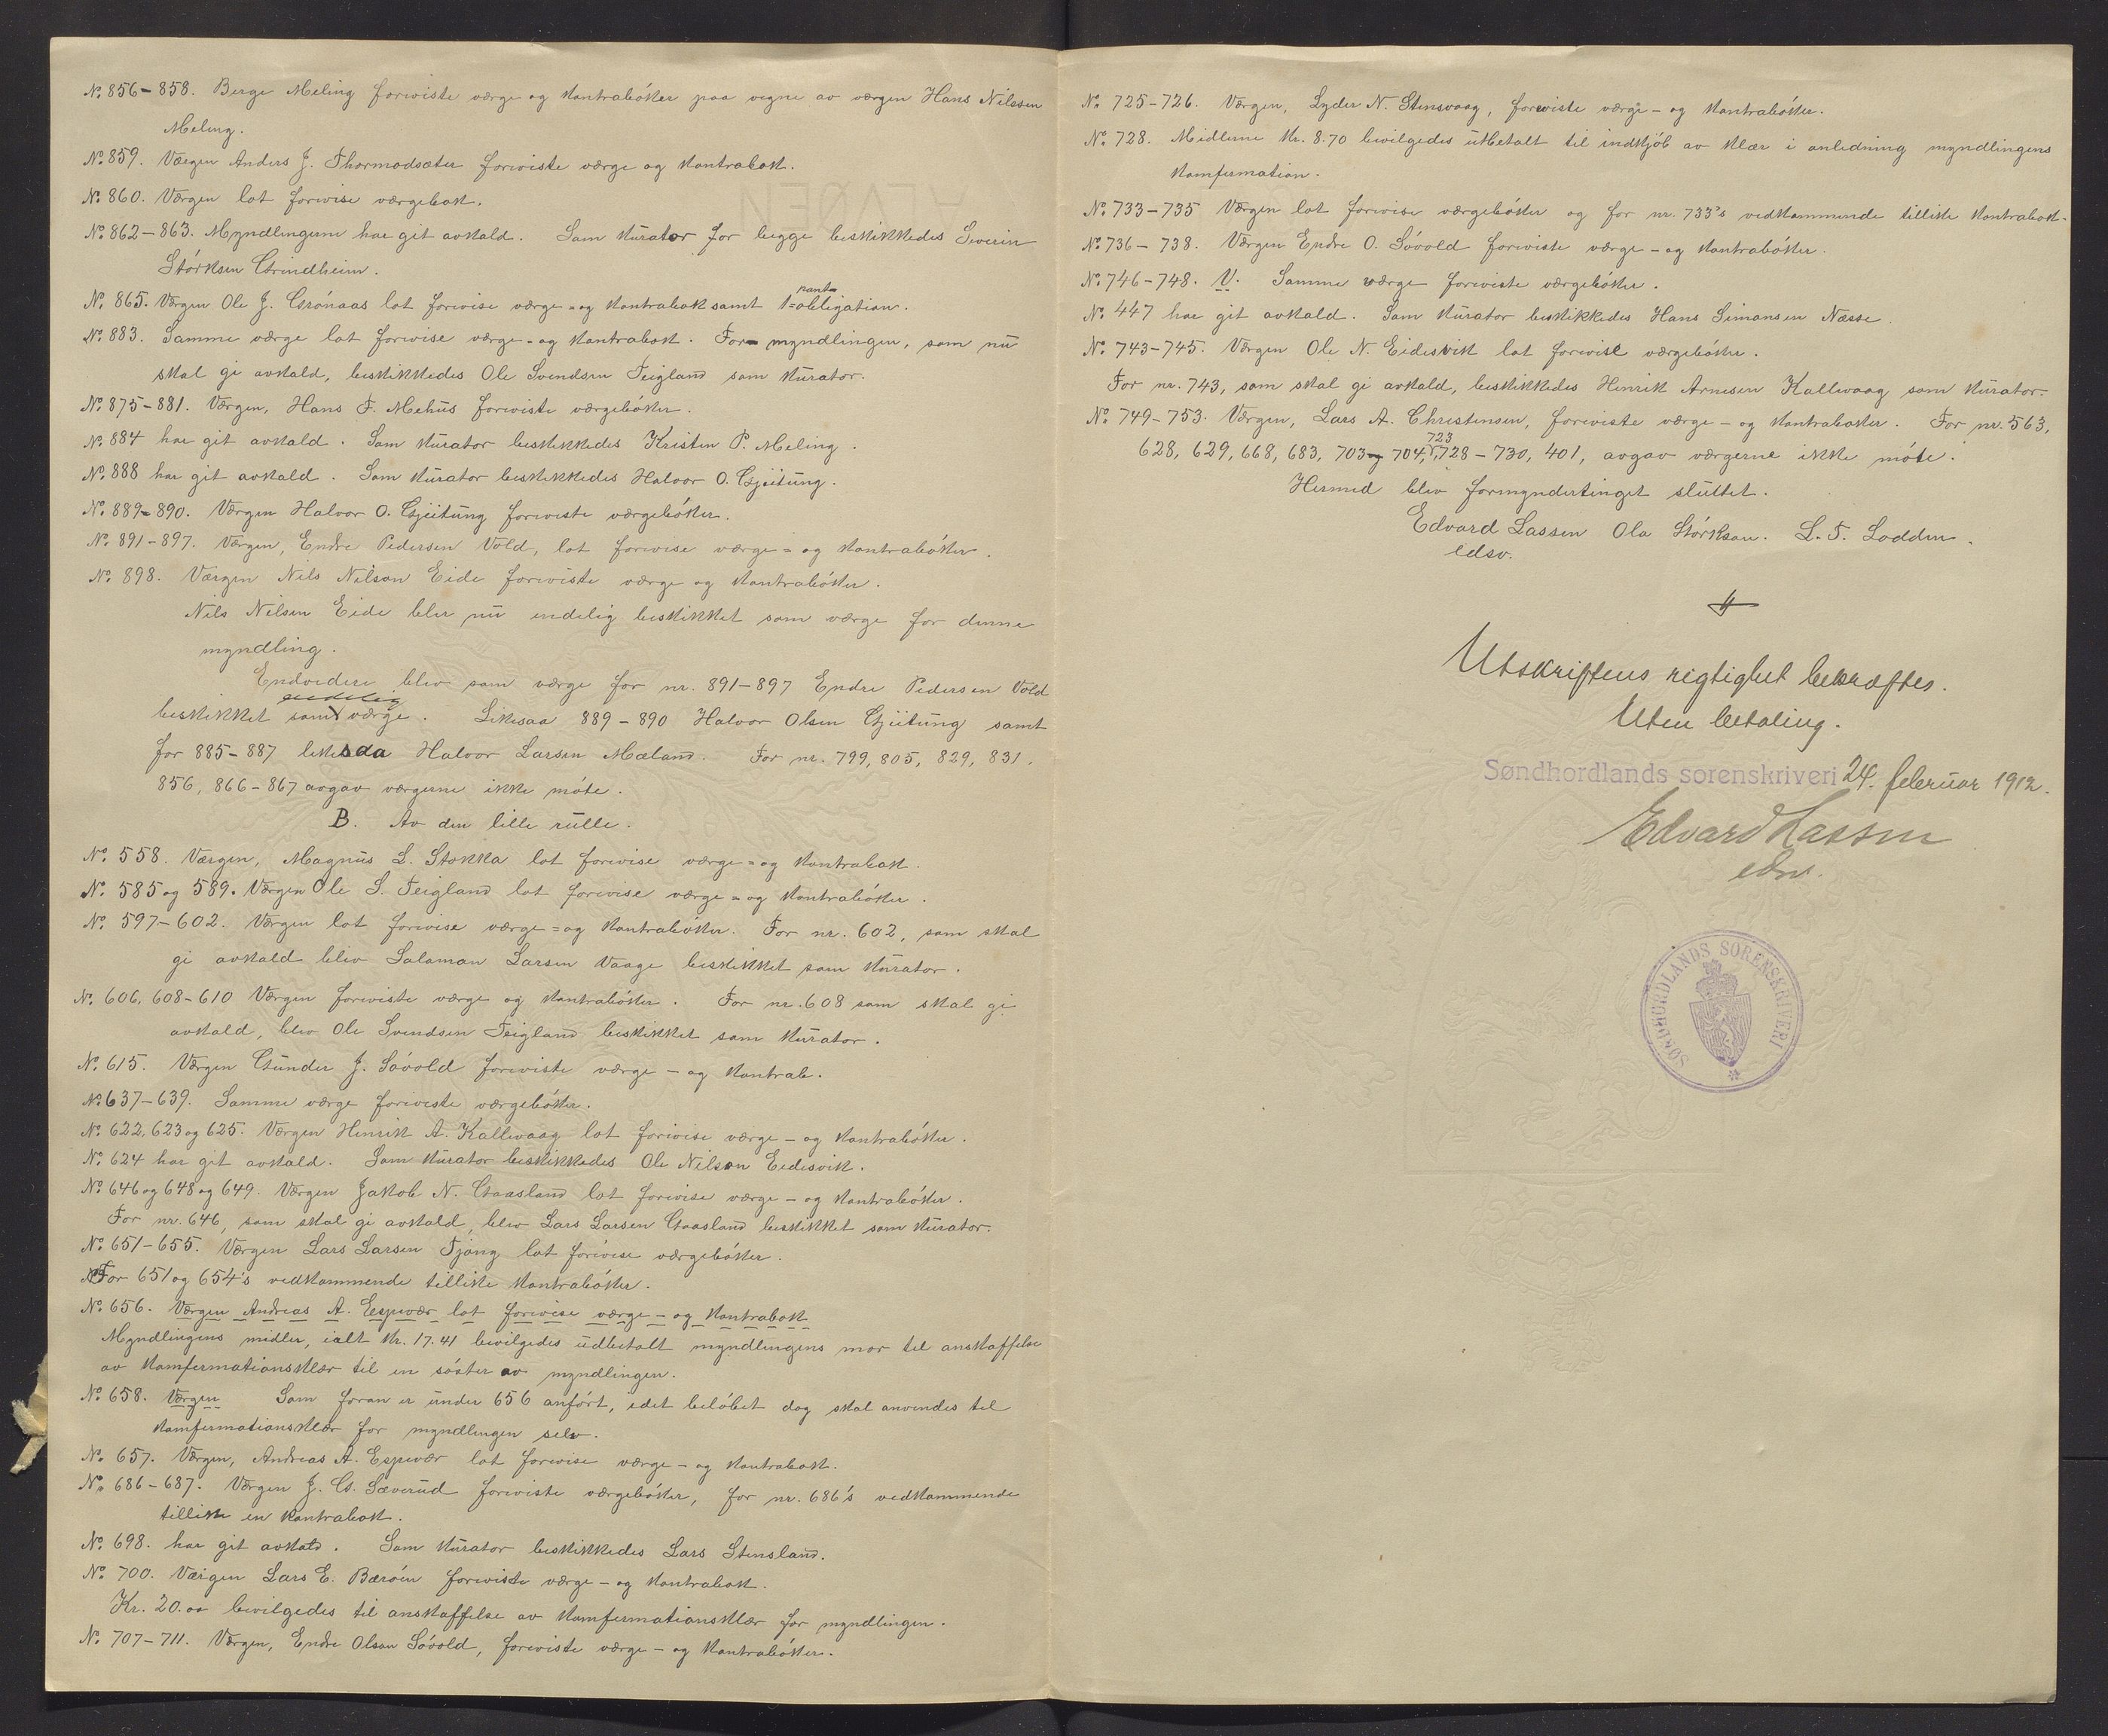 No. 856-858. Berge Meling foreviste værge og kontrabøker paa vegne av værgen Hans Nilssen
Meling.
No. 859. Værgen Anders J. Thormodsæter foreviste værge og kontrabok.
No. 860. Værgen lot forevise værgebok.
No. 862-863. Myndlingerne har git avkald. Som kurator for begge beskikkedes Severin
Størksen Grindheim.
No. 865. Værgen Ole J. Grønaas lot forevise værge- og kontrabok samt 1 pant-obligation.
No. 883. Samme værge lot forevise værge- og kontrabok. For myndlingen, som nu
skal gi avkald, beskikkedes Ole Svendsen Teigland som kurator.
No. 875-881. Værgen, Hans T. Mehus foreviste værgebøker.
No. 884 har git avkald. Som kurator beskikkedes Kristen P. Meling.
No. 888 har git avkald. Som kurator beskikkedes Halvor O. Gjeitung.
No. 889-890. Værgen Halvor O. Gjeitung foreviste værgebøker.
No. 891-897. Værgen, Endre Pedersen Vold, lot forevise værge- og kontrabøker.
No. 898. Værgen Nils Nilson Eide foreviste værge og kontrabøker.
Nils Nilsen Eide blir nu endelig beskikket som værge for denne
myndling.
Endvidere blev som værge for nr. 891-897 Endre Pedersen Vold
endelig
beskikket som værge. Likesaa 889-890 Halvor Olsen Gjeitung samt
for 885-887 likesaa Halvor Larsen Mæland. For nr. 799, 805, 829, 831,
856, 866-867 avgav værgerne ikke møte.
B. Av den lille rulle.
No. 558. Værgen, Magnus L. Stokka lot forevise værge- og kontrabok.
No. 585 og 589. Værgen Ole S. Teigland lot forevise værge- og kontrabøker.
No. 597-602. Værgen lot forevise værge- og kontrabøker. For nr. 602, som skal
gi avkald blev Salamon Larsen Vaage beskikket som kurator.
No. 606, 608-610 Værgen foreviste værge og kontrabøker. For nr. 608 som skal gi
avkald, blev Ole Svendsen Teigland beskikket som kurator.
No. 615. Værgen Gunder J. Søvold foreviste værge- og kontrab.
No. 637-639. Samme værge foreviste værgebøker.
No. 622, 623 og 625. Værgen Henrik A. Kallevaag lot forevise værge- og kontrabøker.
No. 624 har git avkald. Som kurator beskikkedes Ole Nilson Eidesvik.
No. 646 og 648 og 649. Værgen Jakob N. Gaasland lot forevise værge- og kontrabøker.
For nr. 646, som skal gi avkald, blev Lars Larsen Gaasland beskikket som kurator.
No. 651-655. Værgen Lars Larsen Tjong lot forevise værgebøker.
For 651 og 654's vedkommende tillike kontrabøker.
No. 656. Værgen Andreas A. Espevær lot forevise værge- og kontrabok
Myndlingens midler, ialt kr. 17.41 bevilgedes udbetalt myndlingens mor til anskaffelse
av konfermationsklær til en søster av myndlingen.
No. 658. Værgen Som foran er under 656 anført, idet beløbet dog skal anvendes til
konfermationsklær for myndlingen selv.
No. 657. Værgen, Andreas A. Espevær lot forevise værge- og kontrabok.
No. 686-687. Værgen J. G. Sæverud foreviste værgebøker, for nr. 686's vedkommende
tillike en kontrabok.
No. 698. har git avkald. Som kurator beskikkedes Lars Stensland.
No. 700. Værgen Lars E. Bærøen foreviste værge- og kontrabok.
Kr. 20.00 bevilgedes til anskaffelse av konfermationsklær for myndlingen.
No. 707-711. Værgen, Endre Olson Søvold, foreviste værge- og kontrabøker.
No. 725-726. Værgen, Lyder N. Stensvaag, foreviste værge- og kontrabøker.
No. 728. Midlerne kr. 8.70 bevilgedes utbetalt til indkjøb av klær i anledning myndlingens
konfermation.
No. 733-735 Værgen lot forevise værgebøker og for nr. 733's vedkommende tillike kontrabok.
No. 736-738. Værgen Endre O. Søvold foreviste værge- og kontrabøker.
No. 746-748. V. Samme værge foreviste værgebøker.
No. 447 har git avkald. Som kurator beskikkedes Hans Simonsen Næsse.
No. 743-745. Værgen Ole N. Eidesvik lot forevise værgebøker.
For nr. 743, som skal gi avkald, beskikkedes Henrik Arnesen Kallevaag som kurator.
No. 749-753. Værgen, Lars A. Christensen, foreviste værge- og kontrabøker. For nr. 563,
628, 629, 668, 683, 703 og 704, 723, 728-730, 401, avgav værgerne ikke møte.
Hermed blev formyndertinget sluttet.
Edvard Lassen Ola Størkson. L. T. Lodden.
edsv.
Utskriftens rigtighet bekræftes.
Uten betaling.
Søndhordlands sorenskriveri 24. februar 1912.
Edvard Lassen
edsv.
SØNDHORDLANDS SORENSKRIVERI